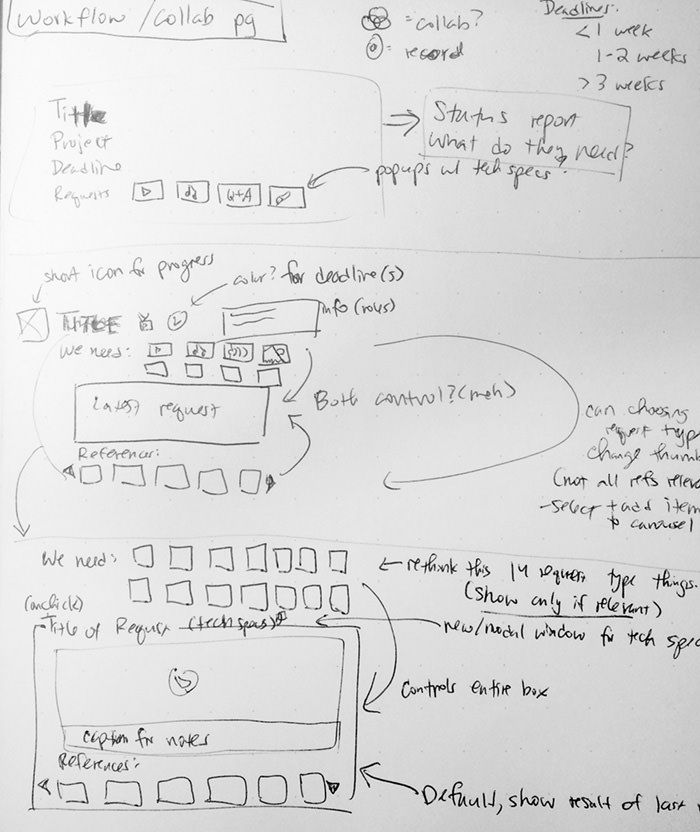 Workflow / Collab pg
= collab?
= record
Deadlines:
< 1 week
1-2 weeks
> 3 weeks
Title
Project
Deadline
Requests
Q+A
Status report
What do they need?
popups w/ tech specs
short icon for progress
color? for deadline(s)
TITLE
info (rows)
We need:
Latest request
Both control? (meh)
References:
can choosing
request typ
change thumb
(not all refs relev
-select + add item
to carousel
We need:
rethink this 14 request type things.
(show only if relevant)
(onclick)
Title of Request (tech specs)
new/modal window for tech spec
Controls entire box
caption for notes
References:
Default, show result of last